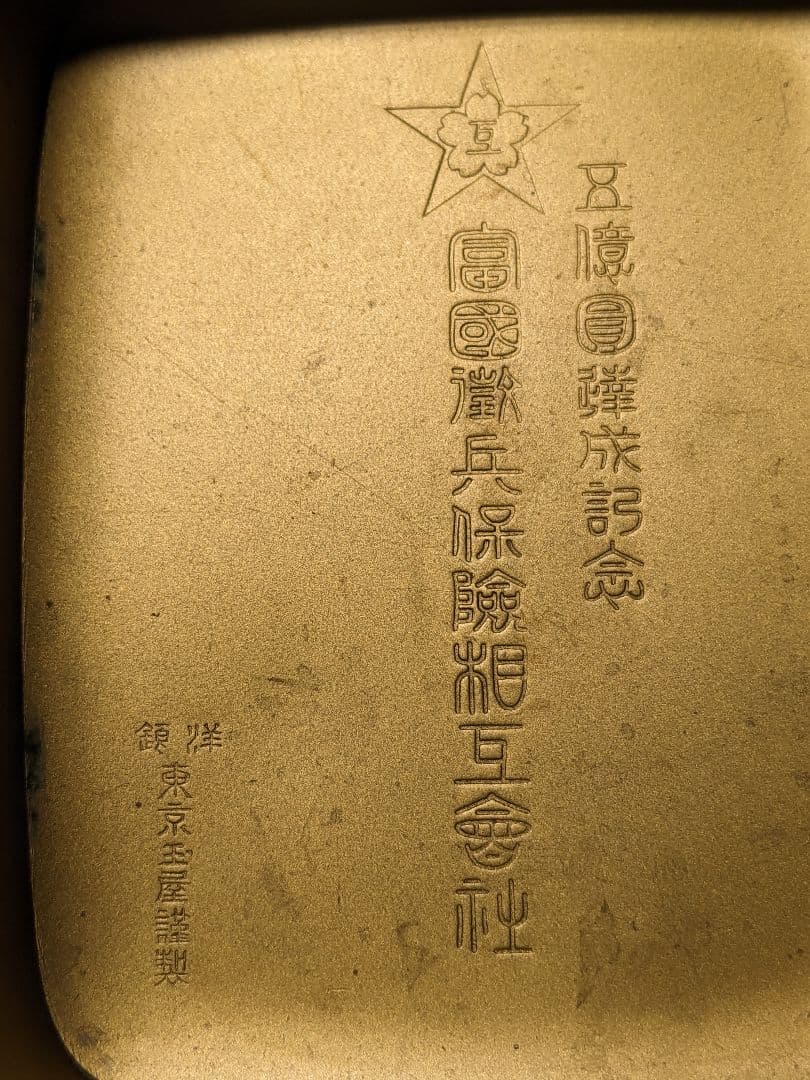 五億圓達成記念
互
富國徵兵保險相互會社
洋
東京玉屋謹製